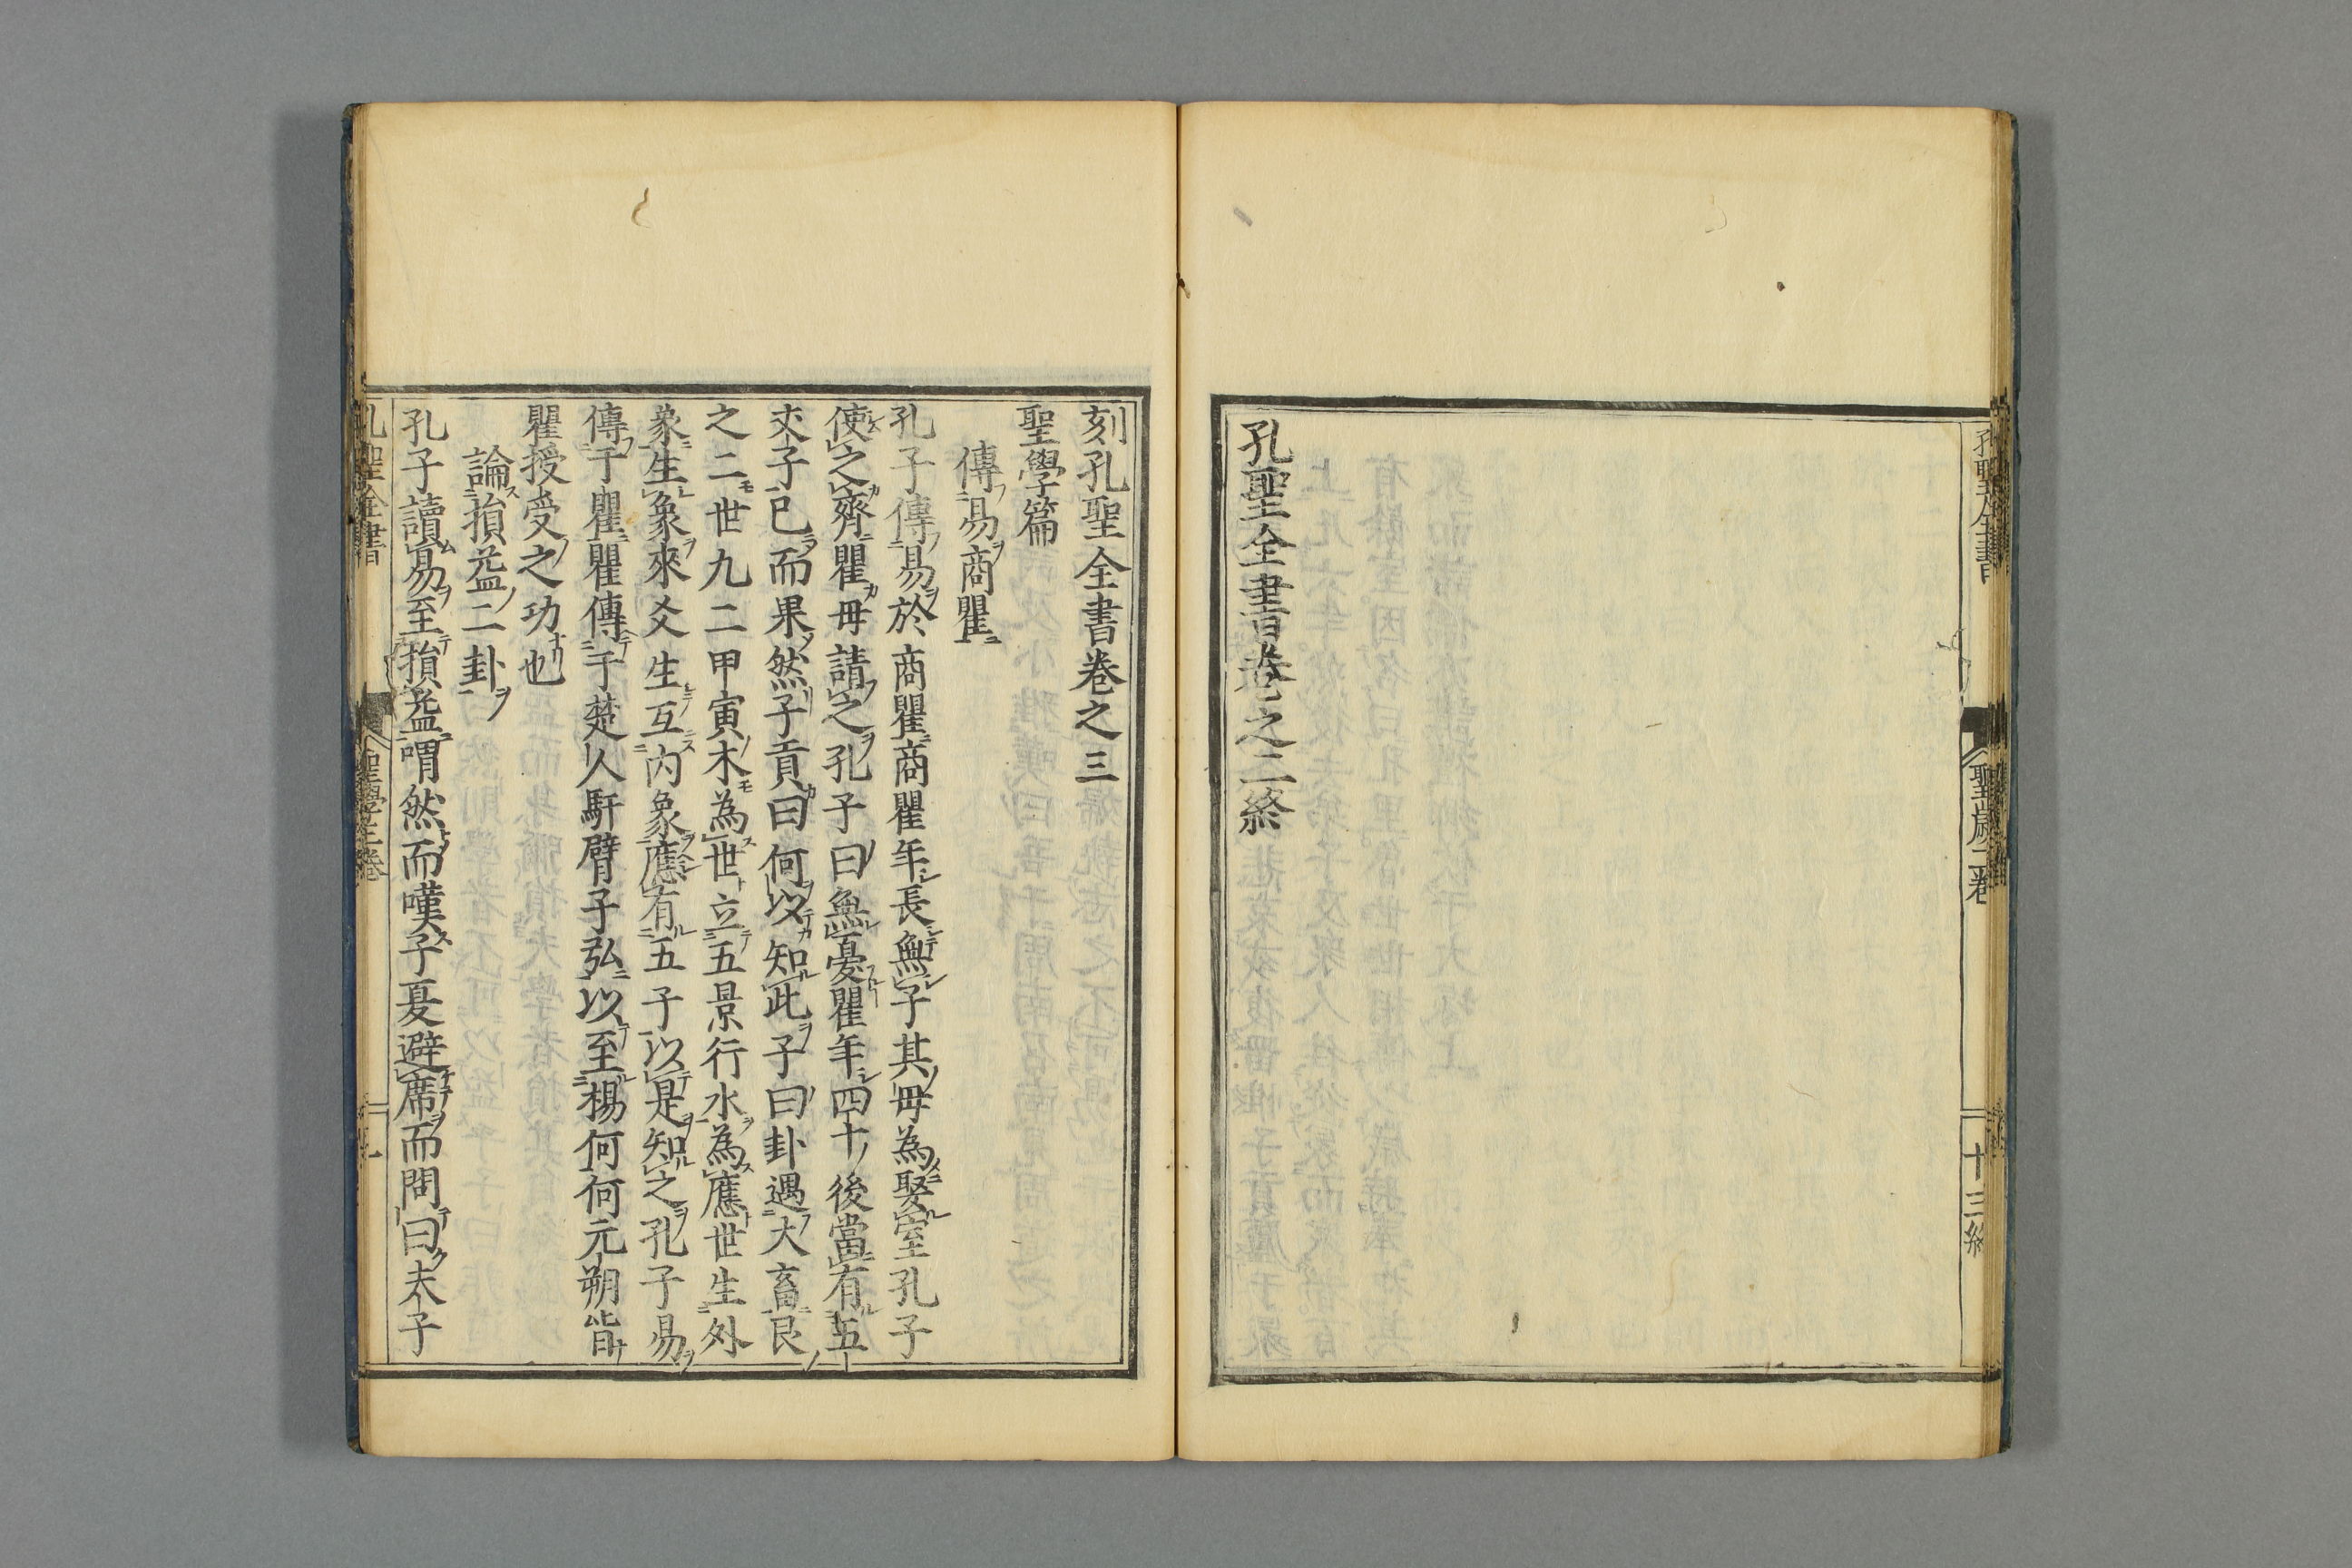 孔聖全書
聖歲二卷
十三終
孔聖全書卷之二終
刻孔聖全書卷之三
聖學篇
傳易商瞿
孔子傳易於商瞿商瞿年長無子其毋為娶室孔子
使之齊瞿毋請之孔子曰無憂瞿年四十後當有五
丈子已而果然子貢曰何以知此子曰卦遇大畜艮
之二世九二甲寅木為世立五景行水為應世生外
象生象來爻生互内象應有五子以是知之孔子易
傳于瞿瞿傳于楚人馯臂子弘以至楊何何元朔皆
瞿授受之功也
論損益二卦
孔子讀易至損益喟然而嘆子夏避席而問曰夫子
孔聖全書
聖學三卷